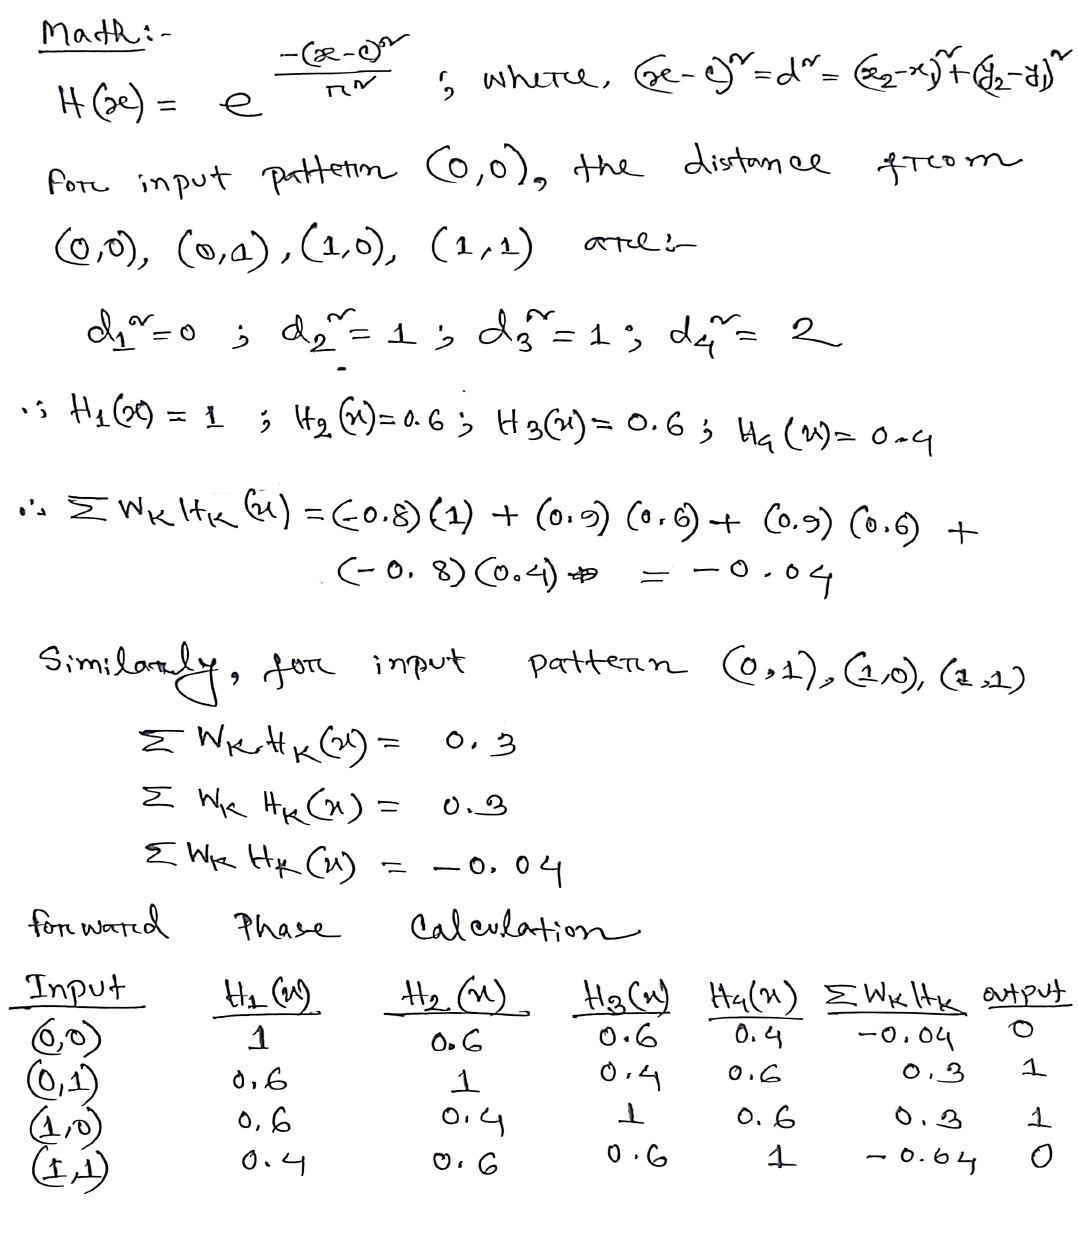 Math:-
H(x) = e^(-(x-c)²/r²) ; where, (x-c)² = d² = (x₂-x₁)² + (y₂-y₁)²
for input pattern (0,0), the distance from
(0,0), (0,1), (1,0), (1,1) are:-
d₁² = 0 ; d₂² = 1 ; d₃² = 1 ; d₄² = 2
∴ H₁(x) = 1 ; H₂(x) = 0.6 ; H₃(x) = 0.6 ; H₄(x) = 0.4
∴ Σ WK HK (x) = (-0.8) (1) + (0.9) (0.6) + (0.9) (0.6) +
(-0.8) (0.4) = -0.04
Similarly, for input pattern (0,1), (1,0), (1,1)
Σ WK HK (x) = 0.3
Σ WK HK (x) = 0.3
Σ WK HK (x) = -0.04
forward Phase Calculation
Input H₁(x) H₂(x) H₃(x) H₄(x) Σ WK HK output
(0,0) 1 0.6 0.6 0.4 -0.04 0
(0,1) 0.6 1 0.4 0.6 0.3 1
(1,0) 0.6 0.4 1 0.6 0.3 1
(1,1) 0.4 0.6 0.6 1 -0.04 0